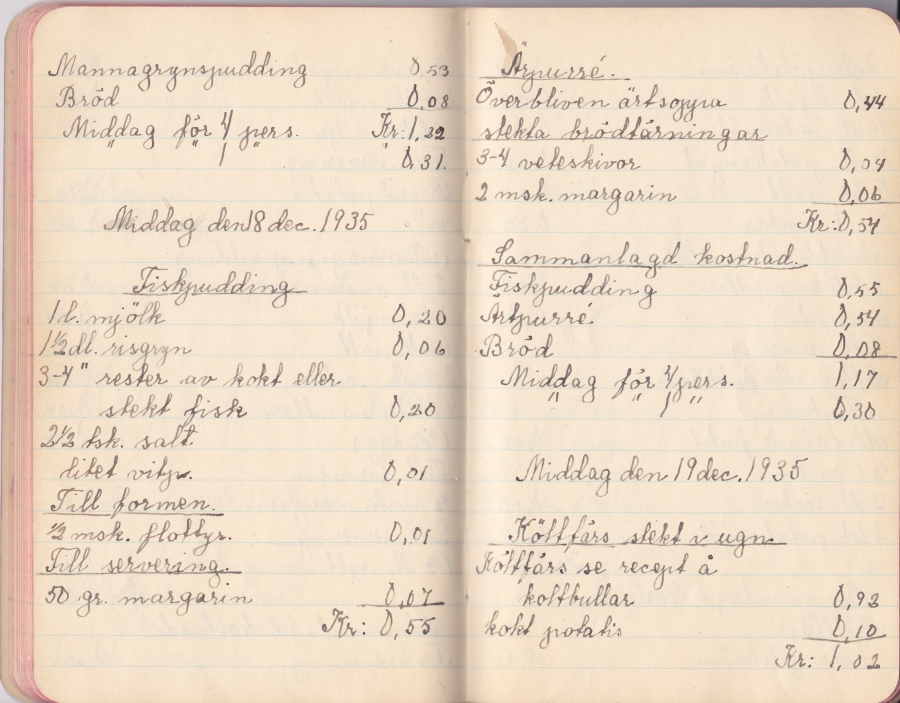 Mannagrynspudding 0,53
Bröd 0,08
Middag för 4 pers. Kr: 1,22
" " 1 " 0,31.
Middag den 18 dec. 1935
Fiskpudding
1 l. mjölk 0,20
1 1/2 dl. risgryn 0,06
3-4 " rester av kokt eller
stekt fisk 0,20
2 1/2 tsk. salt
litet vitp. 0,01
Till formen.
1/2 msk. flottyr. 0,01
Till servering.
50 gr. margarin 0,07
Kr: 0,55
Ärtpurré.
Överbliven ärtsoppa 0,44
stekta brödtärningar
3-4 veteskivor 0,04
2 msk. margarin 0,06
Kr: 0,54
Sammanlagd kostnad.
Fiskpudding 0,55
Ärtpurré. 0,54
Bröd 0,08
Middag för 4 pers. 1,17
" " 1 " 0,30
Middag den 19 dec. 1935
Köttfärs stekt i ugn.
Köttfärs se recept å
köttbullar 0,92
kokt potatis 0,10
Kr: 1,02